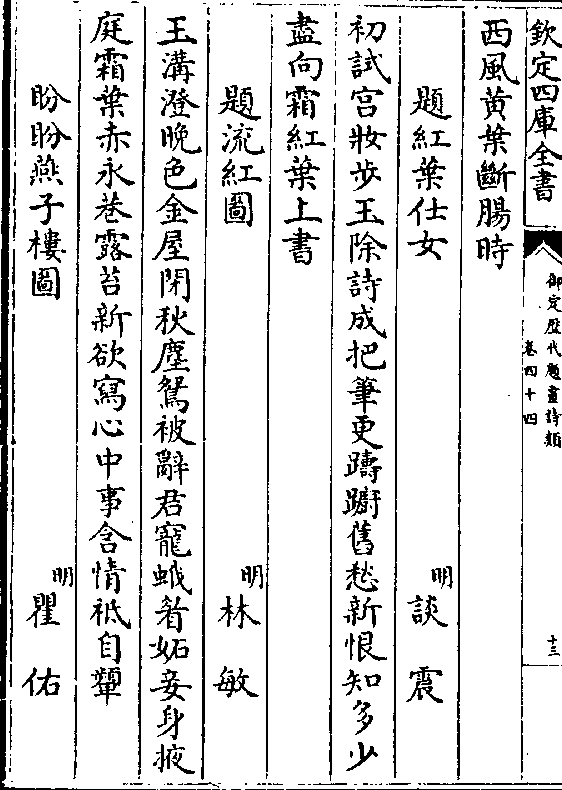 欽定四庫全書
御定歴代題畫詩類
卷四十四
十三
西風黄葉斷腸時
題紅葉仕女
明 談震
初試宫妝步玉除詩成把筆更躊躕舊愁新恨知多少
盡向霜紅葉上書
題流紅圖
明 林敏
玉溝澄晚色金屋閉秋塵鴛被辭君寵蛾眉妬妾身掖
庭霜葉赤永巷露苔新欲寫心中事含情祗自顰
盼盼燕子樓圖
明 瞿佑